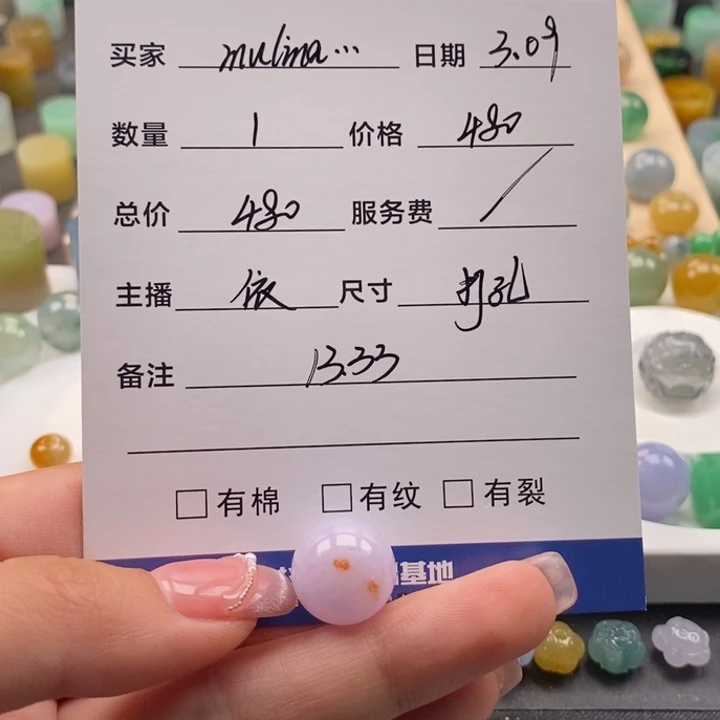 买家 mulina... 日期 3.09
数量 1 价格 480
总价 480 服务费 /
主播 依 尺寸 打孔
备注 13.33
□有棉 □有纹 □有裂
基地